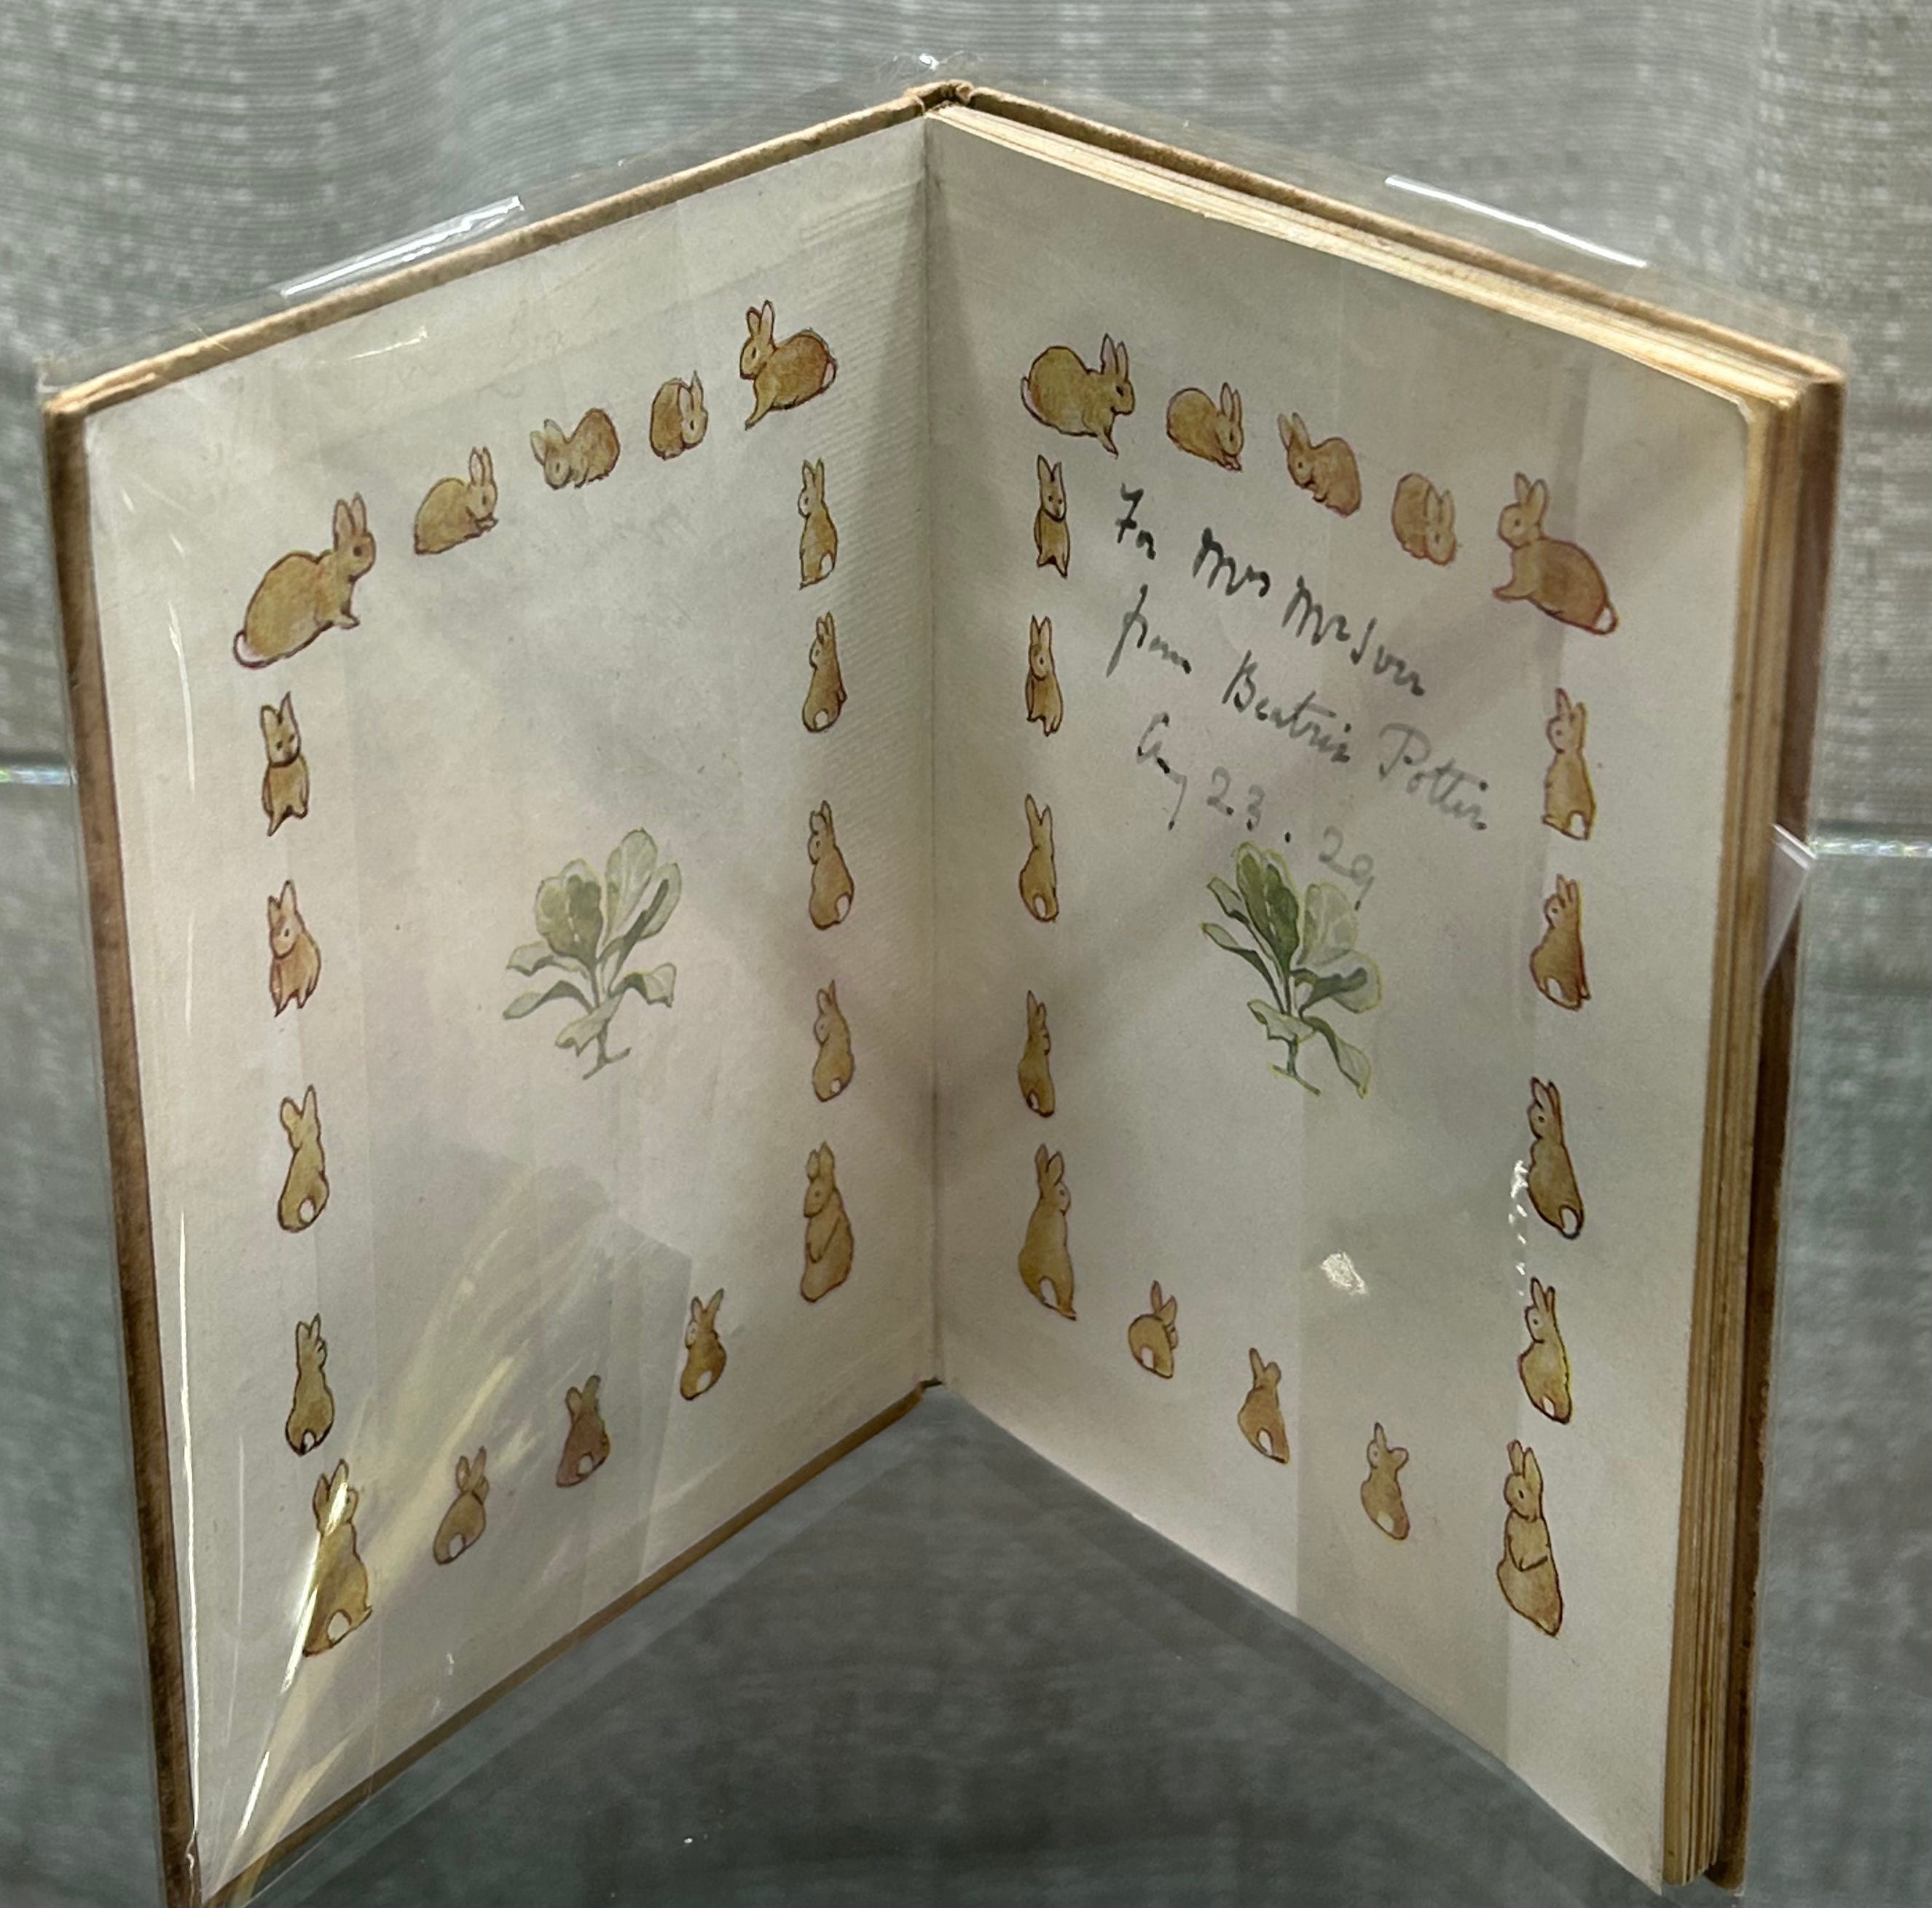 For Mrs
from Beatrix Potter
Aug 23. 29